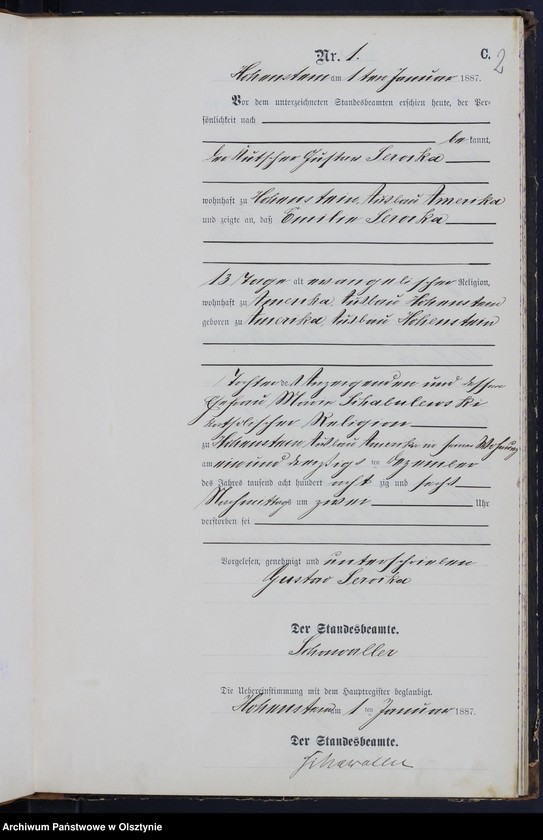 Nr. 1.
C.
2
Hohenstein am 1 ten Januar 1887.
Vor dem unterzeichneten Standesbeamten erschien heute, der Per-
sönlichkeit nach
bekannt,
der Kutscher Gustav Seroka
wohnhaft zu Hohenstein, Ausbau Amerika
und zeigte an, daß Emilie Seroka
13 Tage alt evangelischer Religion,
wohnhaft zu Amerika, Ausbau Hohenstein
geboren zu Amerika, Ausbau Hohenstein
Tochter des Anzeigenden und dessen
Ehefrau, Marie
katholischer Religion
zu Hohenstein, Ausbau Amerika in seiner Wohnung
am einund dreißigsten Dezember
des Jahres tausend acht hundert achtzig und sechs
Nachmittags um zwei Uhr
verstorben sei
Vorgelesen, genehmigt und unterschrieben
Gustav Seroka
Der Standesbeamte.
Schawaller
Die Uebereinstimmung mit dem Hauptregister beglaubigt.
Hohenstein am 1 ten Januar 1887.
Der Standesbeamte.
Schawaller
Archiwum Państwowe w Olsztynie